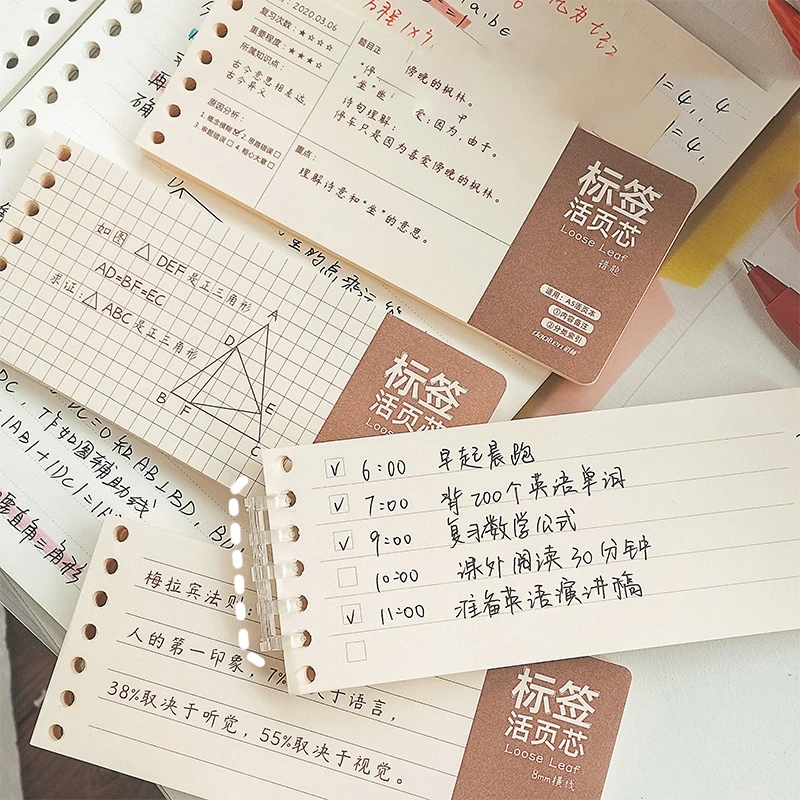 复习次数：★☆☆☆
2020.03.06
重要程度：★★★☆
所属知识点：
古今意思相差远,
古今异义
原因分析：
1. 概念模糊 2. 思路错误
3. 审题错误 4. 粗心大意
题目正
"停 傍晚的枫林。
"坐 坐
诗句理解： 爱;因为,由于。
停车只是因为喜爱傍晚的枫林。
重点：
理解诗意和"坐"的意思。
标签
活页芯
Loose Leaf
错题
适用：A5活页本
①内容备注
②分类索引
如图 △DEF是正三角形
AD=BF=EC
求证:△ABC是正三角形
A
D
B
F
E
C
标签
活页芯
作如图辅助线
直角三角形
6:00 早起晨跑
7:00 背200个英语单词
9:00 复习数学公式
10:00 课外阅读30分钟
11:00 准备英语演讲稿
梅拉宾法则
人的第一印象，7% 于语言，
38%取决于听觉，55%取决于视觉。
标签
活页芯
Loose Leaf
8mm横线